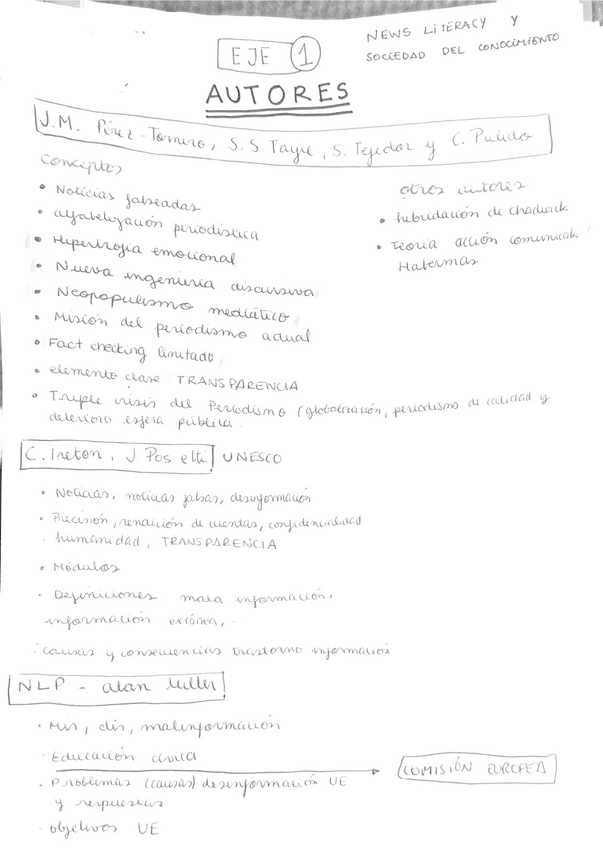 NEWS LITERACY Y
SOCIEDAD DEL CONOCIMIENTO
EJE 1
AUTORES
J.M. Pérez-Tornero, S.S Tayie, S. Tejedor y C. Pulido
Conceptos
• Noticias falseadas
• alfabetización periodística
• Hipertrofia emocional
• Nueva ingeniería discursiva
• Neopopulismo mediático
• Misión del periodismo actual
• Fact checking limitado
• elemento clave TRANSPARENCIA
• Triple crisis del Periodismo (globalización, periodismo de calidad y
deterioro esfera pública
otros autores
• hibridación de chadwick
• Teoria acción comunicati
Habermas
C. Ireton, J Pos etti UNESCO
• Noticias, noticias falsas, desinformación
• Precisión, rendición de cuentas, confidencialidad
humanidad, TRANSPARENCIA
• Módulos
• Definiciones mala información,
información errónea,
: causas y consecuencias trastorno información
NLP - alan Miller
• Mis, dis, malinformación
• Educación cívica
COMISIÓN EUROPEA
• Problemas (causas) desinformación UE
y respuestas
• objetivos UE